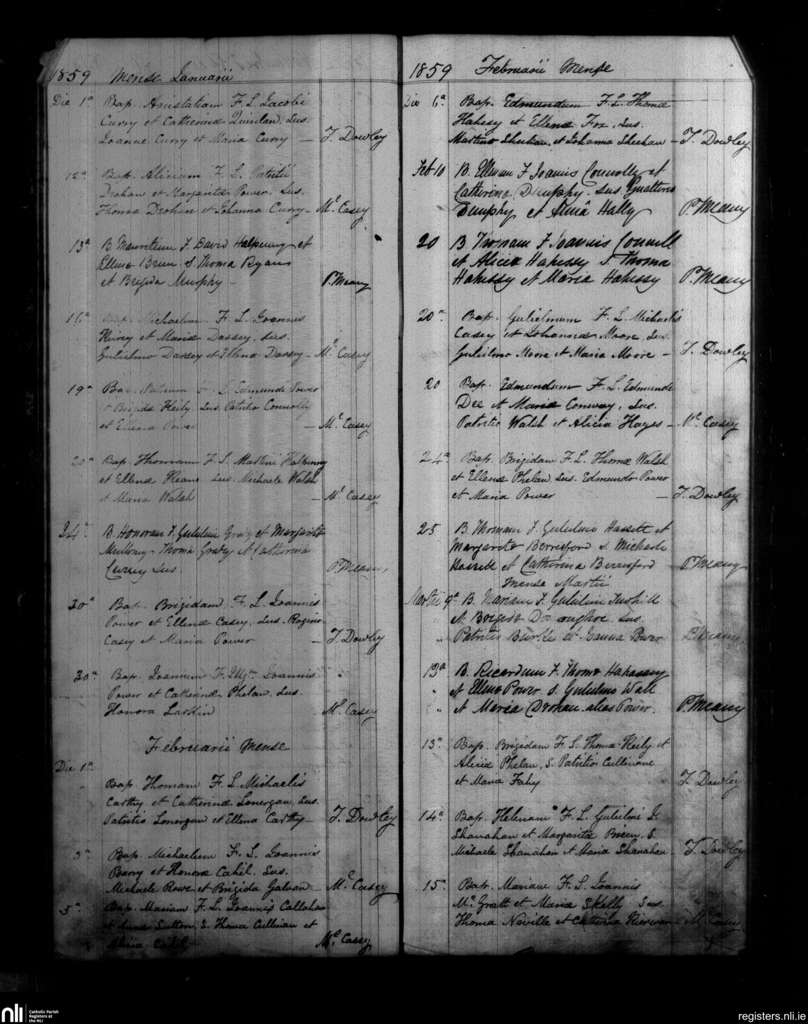 1859 Mense Januarii
Die 1ª Bap. Anastatiam F. L. Jacobi
Curry et Catherinæ Quinlan, Sus.
Joanne Curry et Maria Curry — T. Dowley
12ª Bap. Aliciam F. L. Patritii
Drohan et Margaritæ Power, Sus.
Thoma Drohan et Johanna Curry. Mc. Casey
13ª B Mauritium F David Halpenny et
Ellenæ Brien S. Thoma Ryans
et Brigida Murphy — P. Meany
16ª Bap. Michaelem F. L. Joannis
et Mariæ Dassey, Sus.
Gulielmo Dassey et Ellena Dassey — Mc. Casey
19ª Bap. F. L. Edmundi Power
et Brigidæ Heily, Sus. Patritio Connolly
et Ellena Power — Mc. Casey
20ª Bap. Thomam F. L. Martini Halpenny
et Ellenæ Keane Sus. Michaele Walsh
et Maria Walsh — Mc. Casey
24ª B. Honoram F. Gulielmi Grady et Margaritæ
Thoma Grady et Catherina
Curry Sus. P. Meany
30ª Bap. Brigidam F. L. Joannis
Power et Ellenæ Casey, Sus.
Casey et Maria Power — T. Dowley
30ª Bap. Joannem F. Joannis
Power et Catherinæ Phelan, Sus.
Honora Larkin Mc. Casey
Februarii Mense
Die 1ª
Bap. Thomam F. L. Michaelis
Carthy et Catherinæ Lonergan, Sus.
Patritio Lonergan et Ellena Carthy — T. Dowley
3ª Bap. Michaelem F. L. Joannis
Barry et Honora Cahil, Sus.
Michaele Rowe et Brigida Galvan Mc. Casey
5ª Bap. Mariam F. L. Joannis Callahan
et Sutton, S. Thoma Cullinan et
Mc. Casey
1859 Februarii Mense
Die 6ª Bap. Edmundum F. L. Thomæ
Hahesy et Ellenæ Fox, Sus.
Martino Sheehan, et Johanna Sheehan — T. Dowley
Feb 10 B. Ellenam F Joannis Connolly et
Catherinæ Dunphy. Sus
Dunphy et Hally P. Meany
20 B Thomam F Joannis Connell
et Aliciæ Hahessy S Thoma
Hahessy et Maria Hahessy P. Meany
20ª Bap. Gulielmum F. L. Michaelis
Casey et Johannæ Moore, Sus.
Gulielmo Moore et Maria Moore — T. Dowley
20 Bap. Edmundum F. L. Edmundi
Dee et Mariæ Conway, Sus.
Patritio Walsh et Alicia Hayes — Mc. Casey
24ª Bap. Brigidam F. L. Thomæ Walsh
et Ellenæ Phelan Sus. Edmundo Power
et Maria Power — T. Dowley
25 B. Thomam F. Gulielmi Hassett et
Margaritæ Berresford S. Michaele
Hassett et Catherina Berresford P. Meany
Mense Martii
Martii 9ª B. Mariam F. Gulielmi
et Brigidæ Sus.
Patritio Burke et Power P. Meany
13ª B. Ricardum F. Thomæ Hahassay
et Ellenæ Power S. Gulielmo Wall
et Maria Drohan alias Power. P. Meany
13ª Bap. Brigidam F. L. Thomæ Heily et
Aliciæ Phelan, S. Patritio Cullinane
et Maria Fahy T. Dowley
14ª Bap. Helenam F. L. Gulielmi
Shanahan et Margaritæ Breen, S.
Michaele Shanahan et Maria Shanahan T. Dowley
15ª Bap. Mariam F. L. Joannis
Mc. Gratt et Mariæ Skelly Sus
Thoma Neville et Catherina Kierwan Mc. Casey
nli
Catholic Parish
Registers at
the NLI
registers.nli.ie